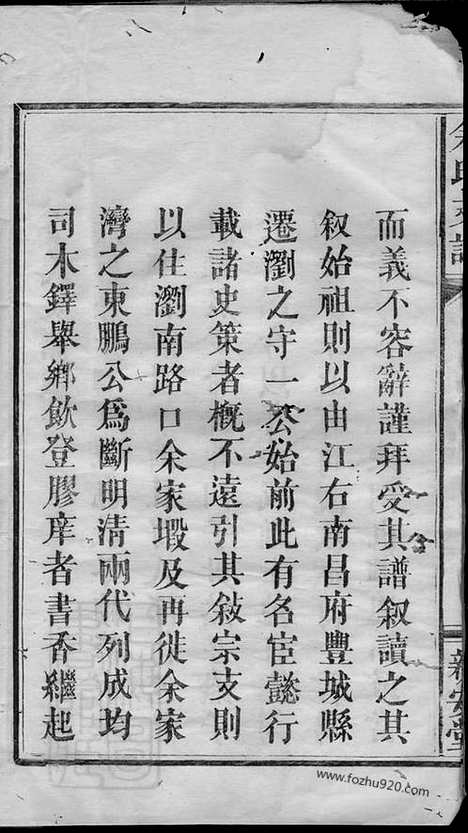 余氏支譜
新安堂
而義不容辭謹拜受其譜叙讀之其
叙始祖則以由江右南昌府豐城縣
遷瀏之守一公始前此有名宦懿行
載諸史策者概不遠引其敍宗支則
以住瀏南路口余家塅及再徙余家
濟之東鵬公為斷明清兩代列成均
司木鐸舉鄉飲登膠庠者書香繼起
www.fozhu920.com